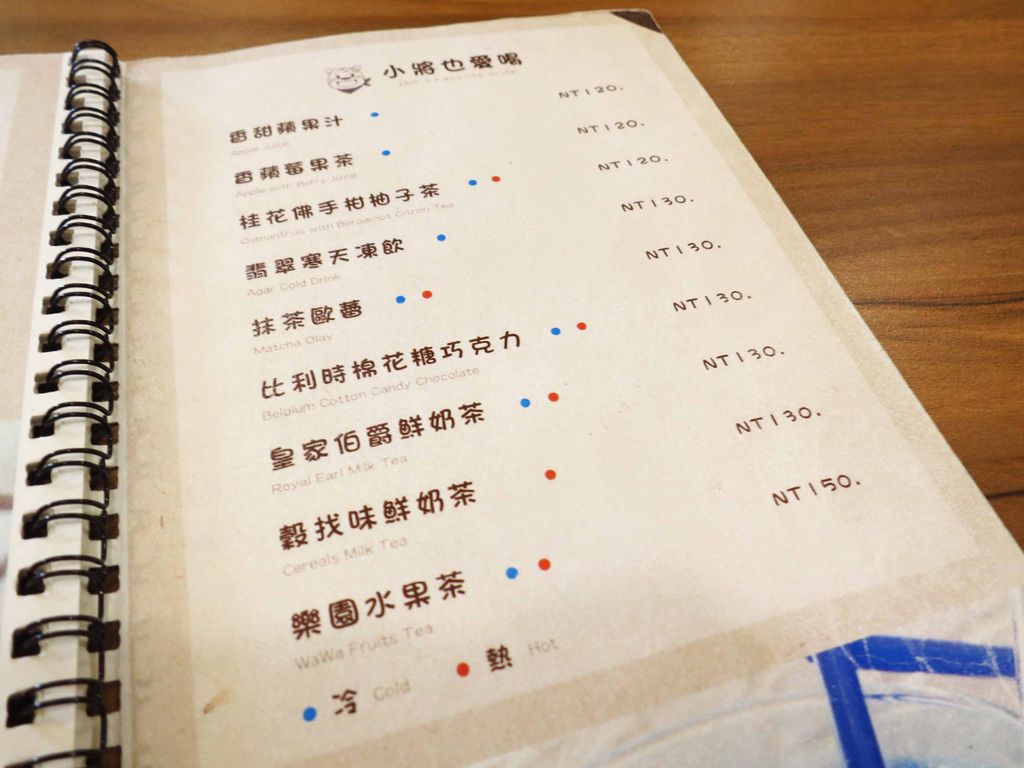 小將也愛喝
香甜蘋果汁 NT120.
Apple Juice
香蘋莓果茶 NT120.
Apple with Berry Juice
桂花佛手柑柚子茶 NT120.
Osmanthus with Bergamot Citron Tea
翡翠寒天凍飲 NT130.
Agar Cold Drink
抹茶歐蕾 NT130.
Matcha Olay
比利時棉花糖巧克力 NT130.
Belgium Cotton Candy Chocolate
皇家伯爵鮮奶茶 NT130.
Royal Earl Milk Tea
穀找味鮮奶茶 NT130.
Cereals Milk Tea
樂園水果茶 NT150.
WaWa Fruits Tea
冷 Cold 熱 Hot